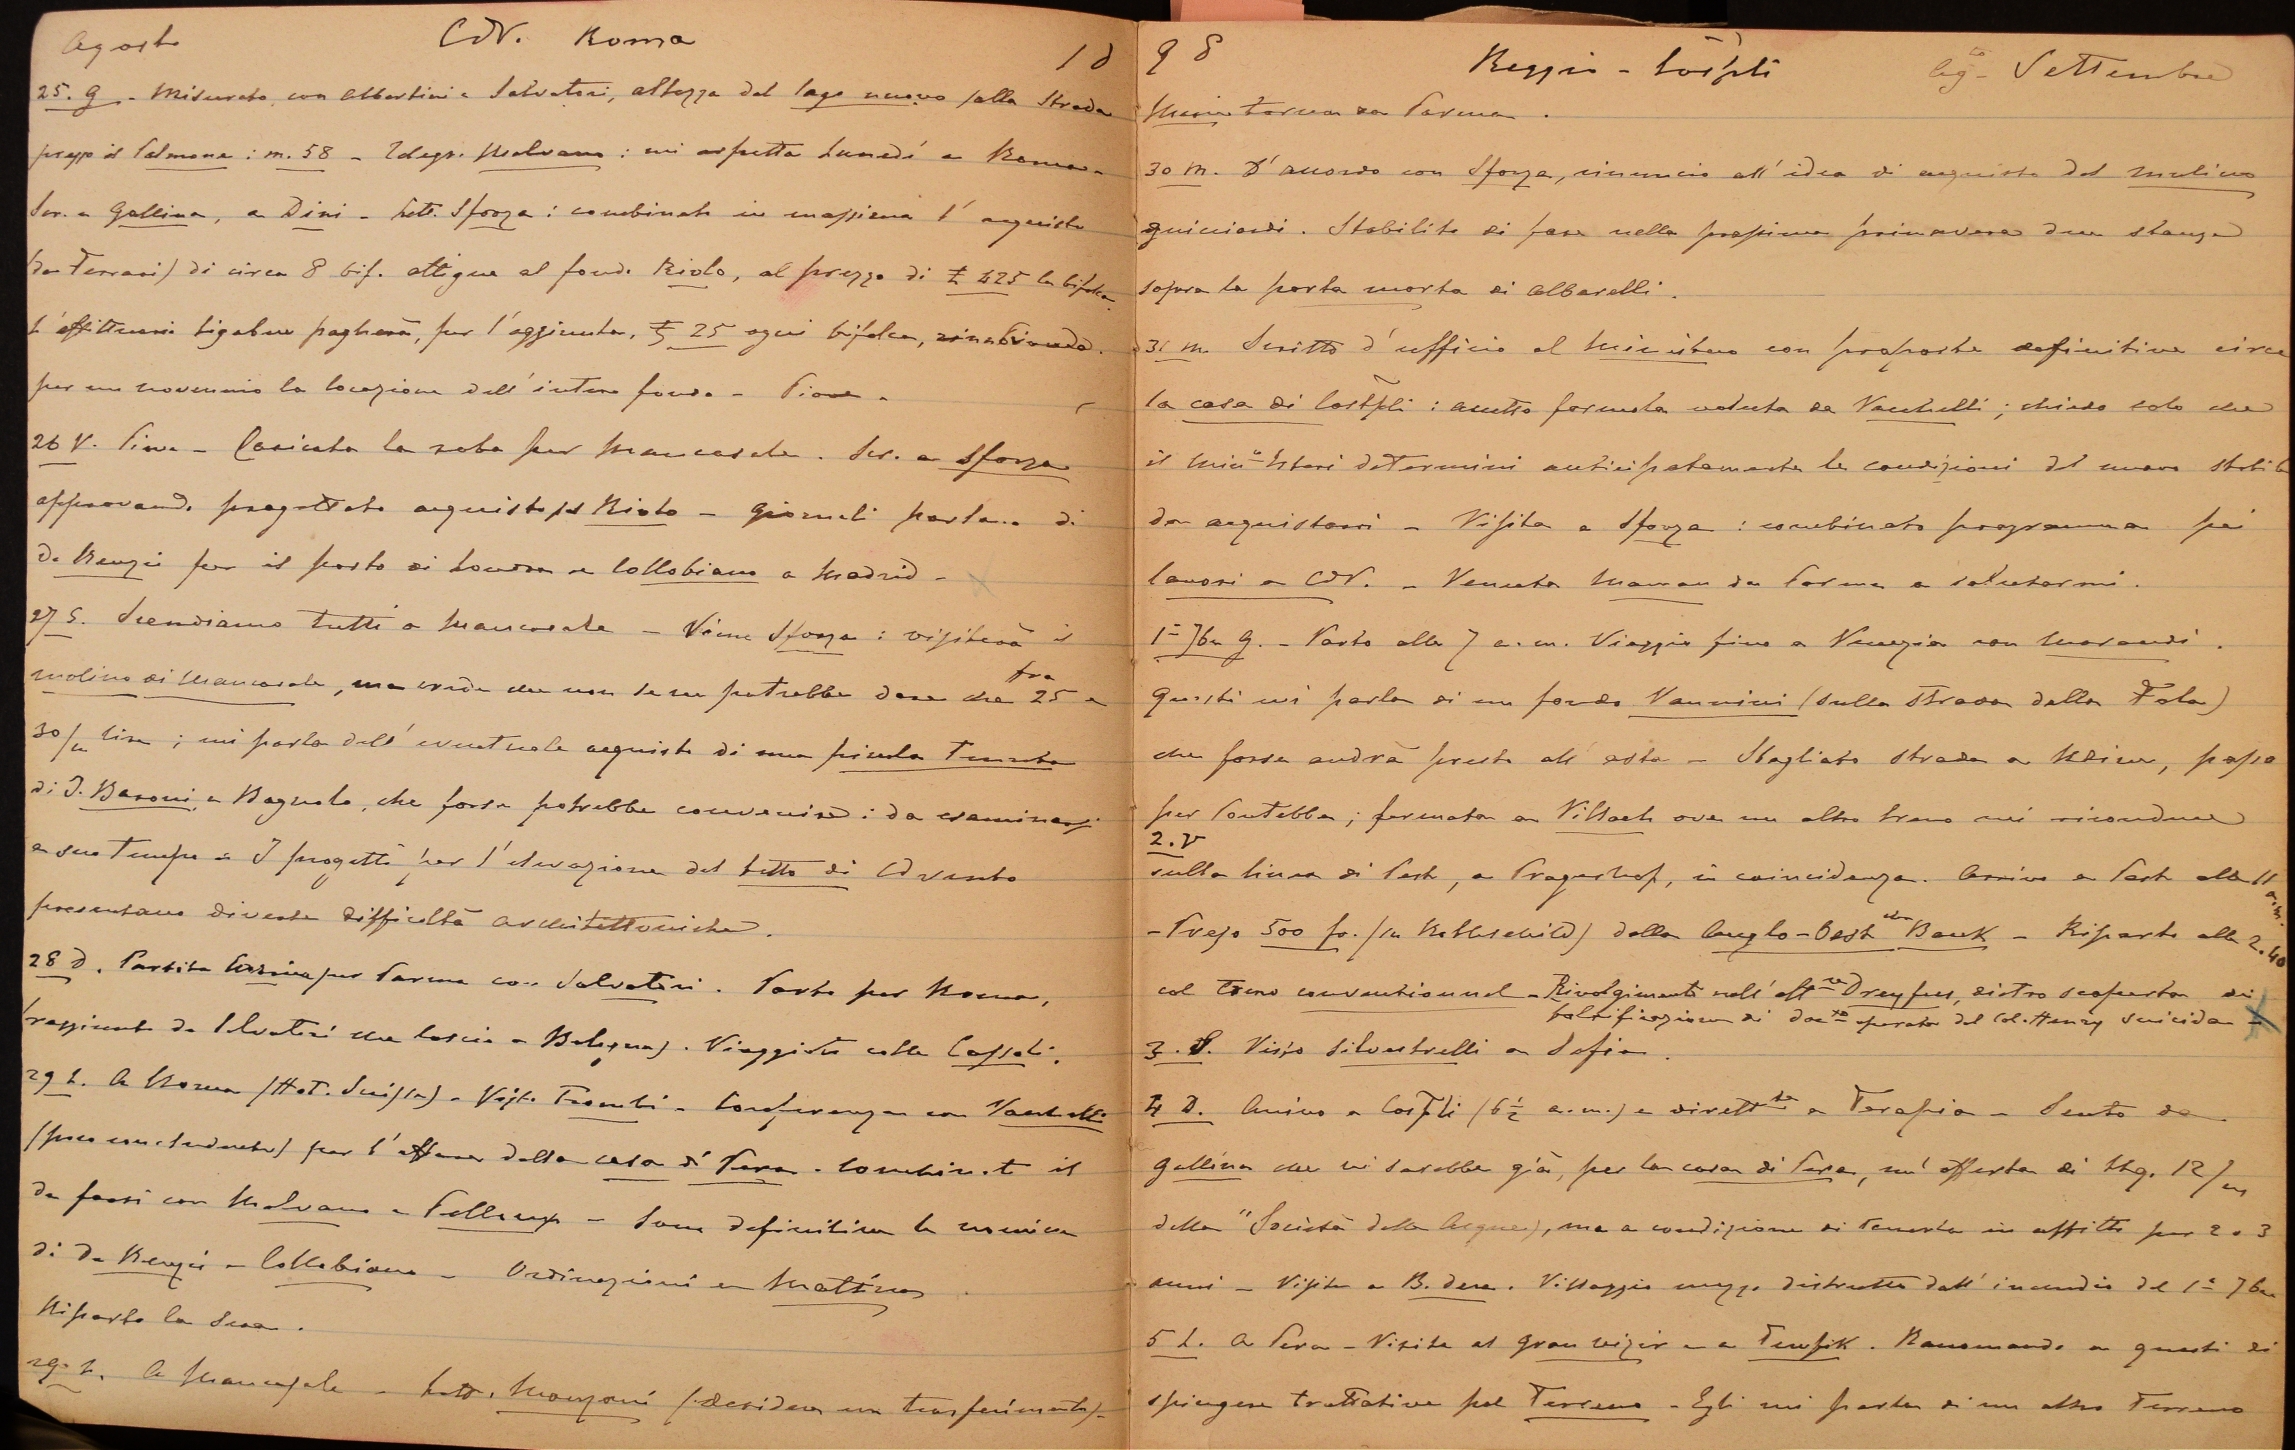 Agosto CdV. Roma 18
25. G. - Misurato, con Albertini e Salvatori, altezza del lago nuovo (alla strada
presso il Palmone : m. 58 - Telegr. Malvano : mi aspetta Lunedì a Roma -
Scr. a Gallina, a Dini - Lett. Sforza : combinato in massima l'acquisto
(da Ferrari) di circa 8 bif. attigue al fondo Riolo, al prezzo di £ 425 la bifolca.
L'affittuario Ligabue pagherà, per l'aggiunta, £ 25 ogni bifolca, rinnovando
per un novennio la locazione dell'intero fondo - Piove -
26 V. Piove - Caricata la roba per Mancasale. Scr. a Sforza
approvando progettato acquisto pel Riolo - Giornali parlano di
De Renzis per il posto di Londra e Collobiano a Madrid -
27 S. Scendiamo tutti a Mancasale - Viene Sforza : visiterà il
molino di Mancasale, ma crede che non se ne potrebbe dare che fra 25 e
30/m lire ; mi parla dell'eventuale acquisto di una piccola tenuta
di J. Baroni, a Bagnolo, che forse potrebbe convenire : da esaminarsi
a suo tempo - I progetti per l'elevazione del tetto di CdVento
presentano diverse difficoltà architettoniche.
28 D. Partita per Parma con Salvatori. Parto per Roma,
(raggiunto da Salvatori che lascio a Bologna). Viaggiato colle Cassoli.
29 L. A Roma (Hot. Suisse) - Visto Trombi - Conferenza con Vacchelli
(poco concludente) per l'affare della casa di Pera. Combinato il
da farsi con Malvano e Pelloux - Sono definitive le nomine
di De Renzis e Collobiano - Ordinazioni a Mattina
Riparto la sera.
29. L. A Mancasale - Lett. Manzoni (desidera un trasferimento) -
98 Reggio - Cospli Ag.to - Settembre
torna da Parma.
30 M. D'accordo con Sforza, rinuncio all'idea di acquisto del molino
Guicciardi. Stabilito di fare nella prossima primavera due stanze
sopra la porta morta di Albarelli.
31 M. Scritto d'ufficio al Ministero con proposte definitive circa
la casa di Costpli : ammessa formula voluta da Vacchelli ; chiedo solo che
il Min.o Esteri determini anticipatamente le condizioni del nuovo stabile
da acquistarsi - Visita a Sforza : combinato programma pei
lavori a CdV. - Venuta Maman da Parma a salutarmi.
1° 7bre G. - Parto alle 7 a.m. Viaggio fino a Venezia con Morandi.
Questi mi parla di un fondo Vannini (sulla strada della Fola)
che forse andrà presto all'asta - Sbagliato strada a Udine, passo
per Pontebba ; fermata a Villach ove un altro treno mi riconduce
2. V
sulla linea di Pest, a Pragerhof, in coincidenza. Arrivo a Pest alle 11 a.m.
- Preso 500 fr. (su Rothschild) dalla Anglo-Oest.che Bank - Riparto alle 2.40
col treno conventionnel - Rivolgimento nell'aff.re Dreyfus, dietro scoperta di
falsificazione di doc.to operata dal Col. Henry suicida -
3. S. Visto Silvestrelli a Sofia.
4 D. Arrivo a Cospli (6 1/2 a.m.) e dirett.te a Terapia - Sento da
Gallina che vi sarebbe già, per la casa di Pera, un'offerta di Ltq. 12/m
della "Società delle Acque), ma a condizione di tenerla in affitto per 2 o 3
anni - Visita a B. dere. Villaggio mezzo distrutto dall'incendio del 1° 7bre
5 L. A Pera - Visita al Gran vizir e a Tewfik. Raccomando a questi di
spingere trattative pel Terreno - Egli mi parla di un altro terreno